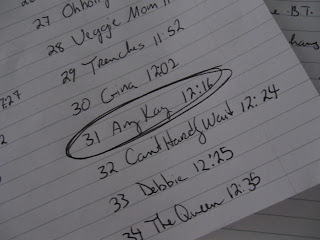 27
28 Veggie Mom
29 Trenches 11:52
30 Gina 1202
31 Amy Kay 12:16
32 Can't Hardly Wait 12:24
33 Debbie 12:25
34 The Queen 12:35
B.T.
7:27